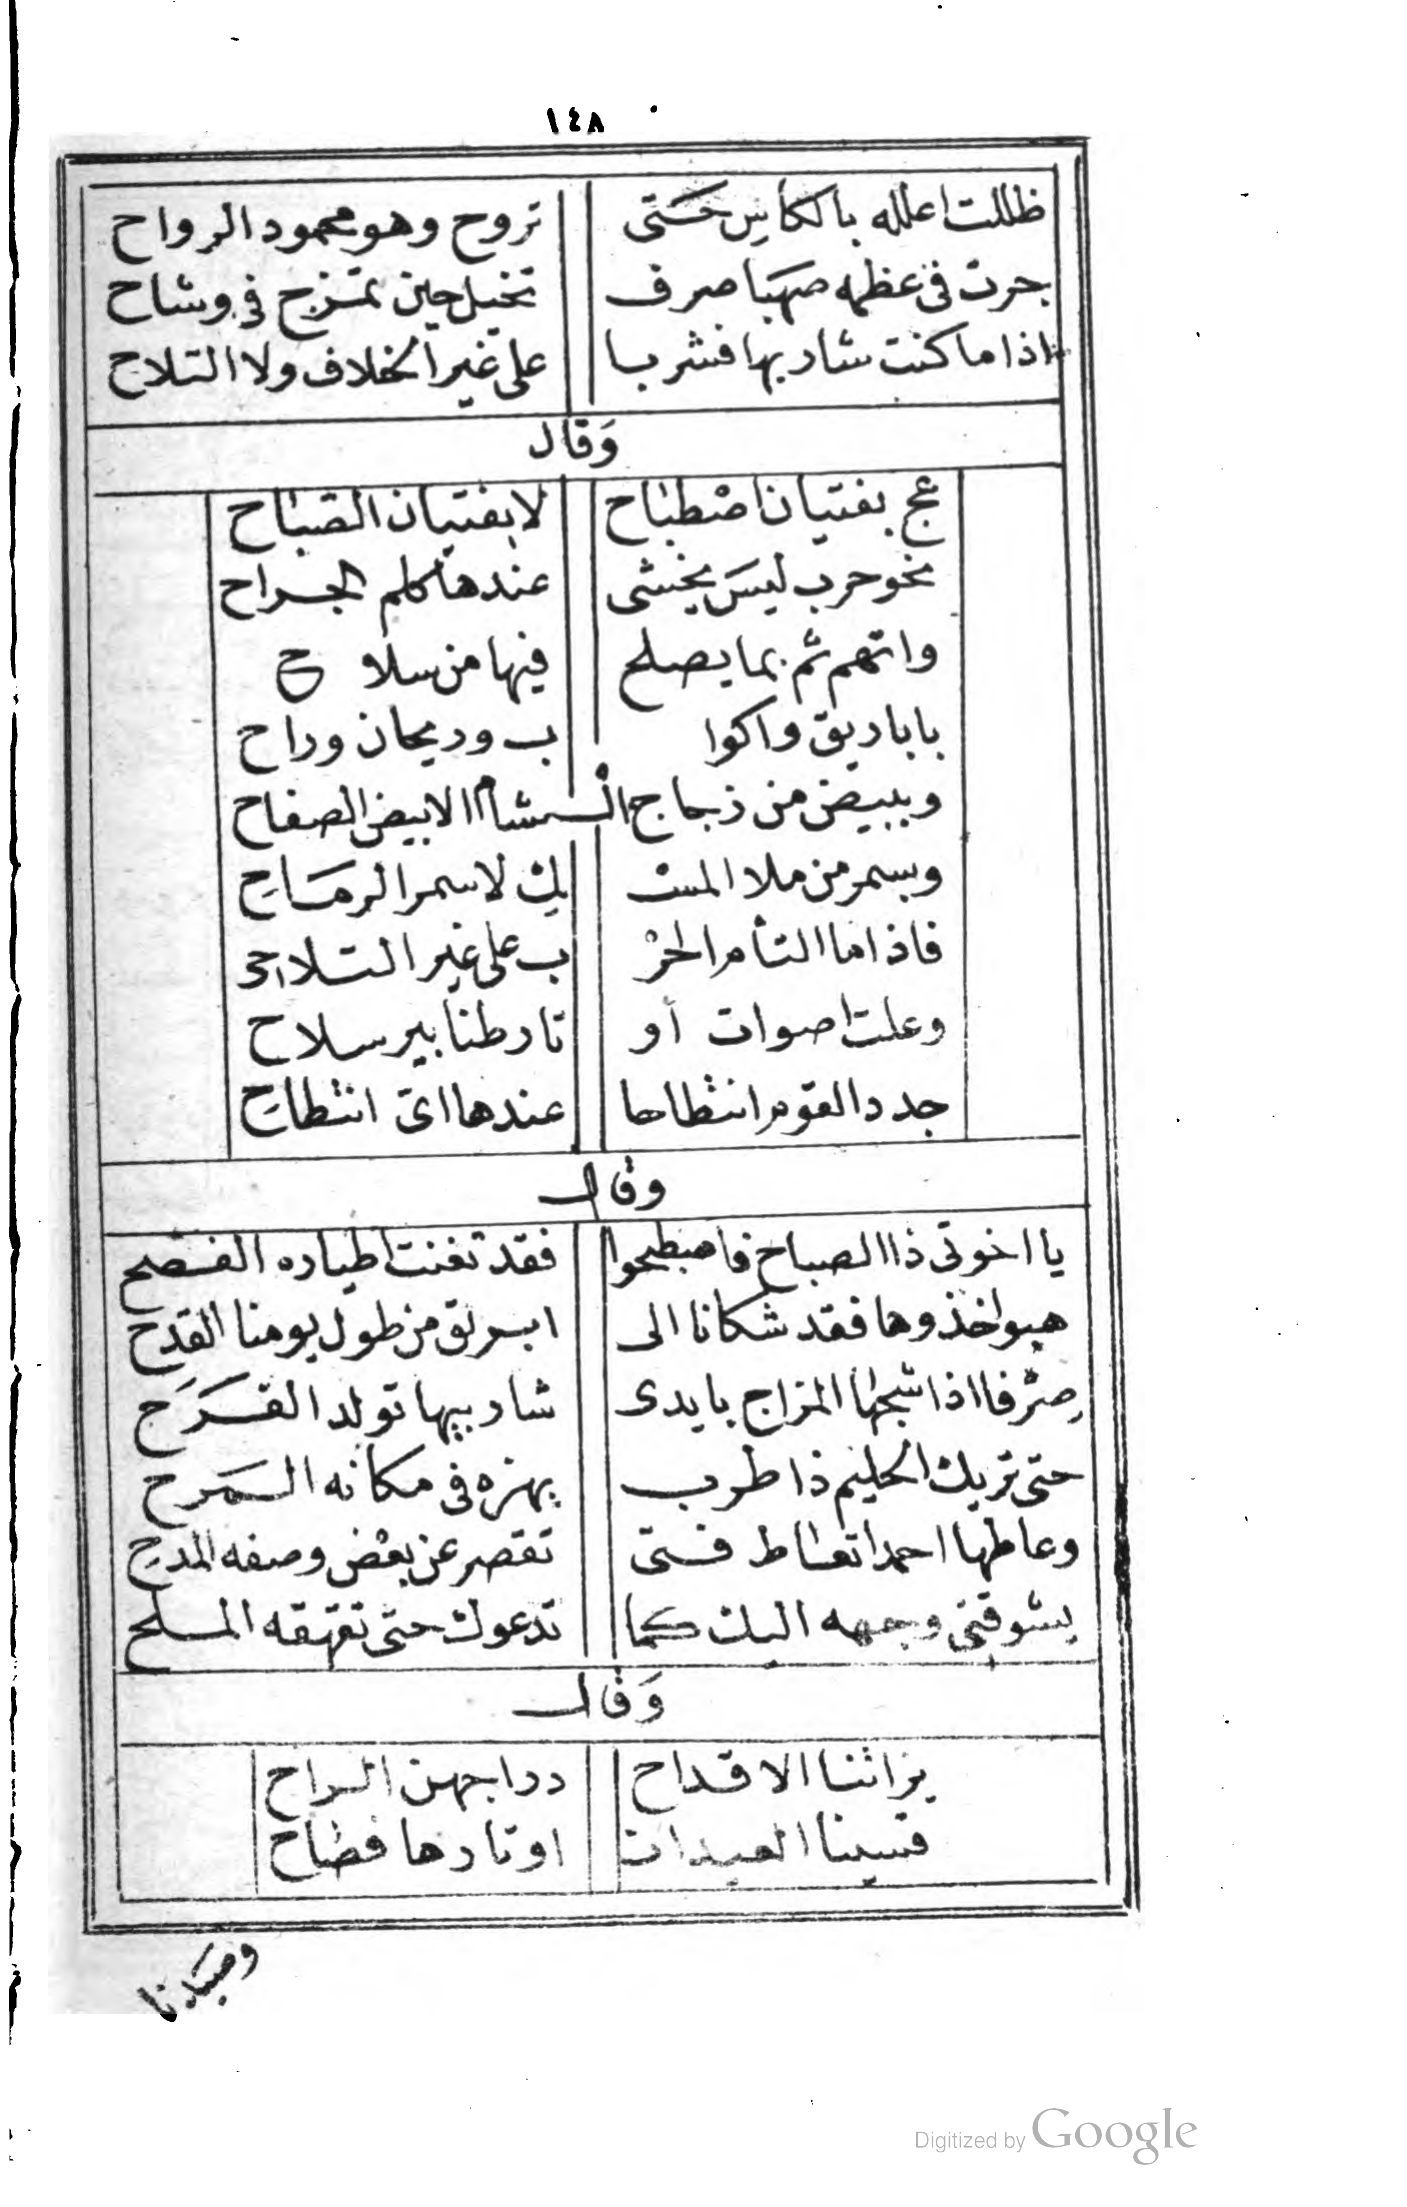 ١٤٨
ظللت اعلله بالكأس حتى تروح وهو محمود الرواح
جرت فى عظمه صهبا صرف تخيل حين تمزج فى وشاح
اذا ما كنت شاربها فشربا على غير الخلاف ولا التلاح
وَقال
عج بفتيان اصْطباح لا بفتيان الصباح
نحو حرب ليسَ يخشى عندها كلم الجراح
واتهم ثم بما يصلح فيها من سلاح
باباريق واكوا ب وريحان وراح
وببيض من زجاج الشأم لا بيض الصفاح
وبسمر من ملا المسْ ك لا سمر الرماح
فاذا ما التأم الحرْ ب على غير التلاحى
وعلت اصوات أو تار طنابير سلاح
جدد القوم انتطاحا عندها اى انتطاح
وقال
يا اخوتى ذا الصباح فاصطبحوا فقد تغنت اطياره الفصح
هبوا خذوها فقد شكانا الى ابريق من طول يومنا القدح
صرْفا اذا شجها المزاج بايدى شاربيها تولد الفَرَح
حتى تريك الحليم ذا طرب يهزه فى مكانه المَرح
وعاطها احمدا تعاط فتى تقصر عن بعْض وصفه المدح
يشوقنى وجهه اليك كما تدعوك حتى تقهقه الملح
وَقال
بزاتنا الاقداح دراجهن الراح
قسينا العيدان اوتارها فصاح
وصيدنا
Digitized by Google